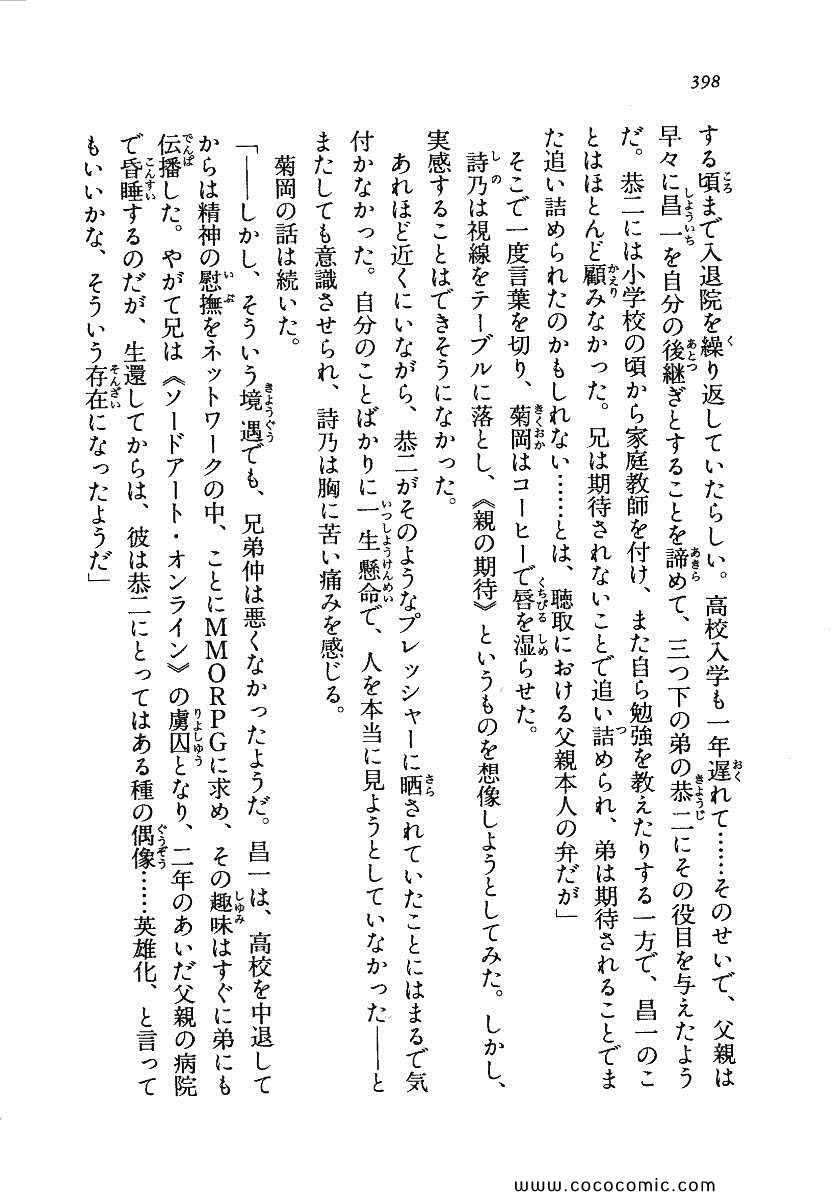 398
する頃まで入退院を繰り返していたらしい。高校入学も一年遅れて……そのせいで、父親は
早々に昌一を自分の後継ぎとすることを諦めて、三つ下の弟の恭二にその役目を与えたよう
だ。恭二には小学校の頃から家庭教師を付け、また自ら勉強を教えたりする一方で、昌一のこ
とはほとんど顧みなかった。兄は期待されないことで追い詰められ、弟は期待されることでま
た追い詰められたのかもしれない……とは、聴取における父親本人の弁だが」
そこで一度言葉を切り、菊岡はコーヒーで唇を湿らせた。
詩乃は視線をテーブルに落とし、《親の期待》というものを想像しようとしてみた。しかし、
実感することはできそうになかった。
あれほど近くにいながら、恭二がそのようなプレッシャーに晒されていたことにはまるで気
付かなかった。自分のことばかりに一生懸命で、人を本当に見ようとしていなかった──と
またしても意識させられ、詩乃は胸に苦い痛みを感じる。
菊岡の話は続いた。
「──しかし、そういう境遇でも、兄弟仲は悪くなかったようだ。昌一は、高校を中退して
からは精神の慰撫をネットワークの中、ことにMMORPGに求め、その趣味はすぐに弟にも
伝播した。やがて兄は《ソードアート・オンライン》の虜囚となり、二年のあいだ父親の病院
で昏睡するのだが、生還してからは、彼は恭二にとってはある種の偶像……英雄化、と言って
もいいかな、そういう存在になったようだ」
www.cococomic.com